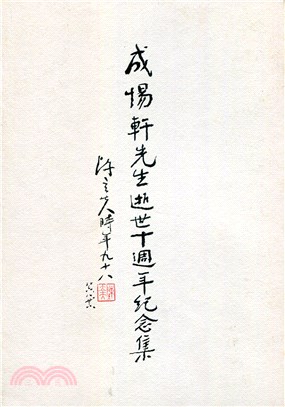 成惕軒先生逝世十週年紀念集
陳立夫時年九十八